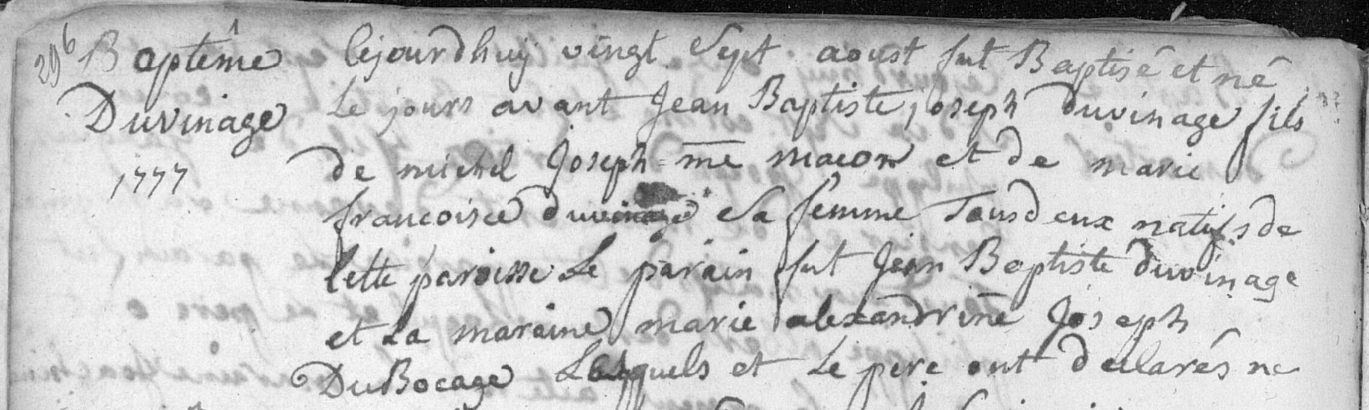 296
Baptême
Duvinage
1777
Cejourdhuÿ vingt Sept aoust fut Baptisé et né
Le jours avant Jean Baptiste joseph duvinage fils
de michel Joseph me macon et de marie
francoisce duvinage Sa femme Tousdeux natifs de
Cette paroisse Le parain fut Jean Baptiste duvinage
et La maraine marie alexandrine Joseph
DuBocage Lesquels et Le pere ont declarés ne